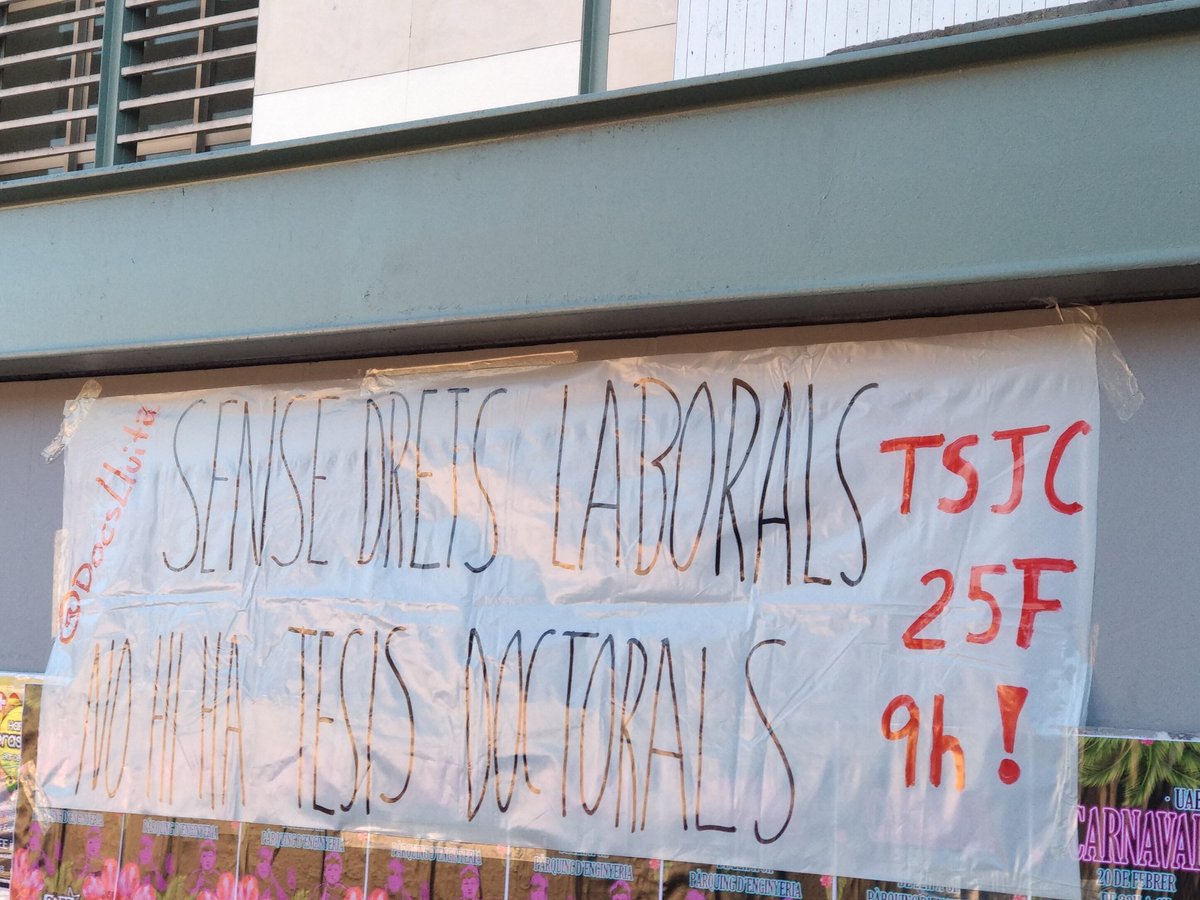 @DocsLluita
SENSE DRETS LABORALS
NO HI HA TESIS DOCTORALS
TSJC
25F
9h!
PÀRQUING D'ENGINYERIA
PÀRQUING D'ENGINYERIA
PÀRQUING D'ENGINYERIA
PÀRQUING D'ENGINYERIA
PÀRQUING D'ENGINYERIA
PÀRQUING D'ENGINYERIA
PÀRQUING D'ENGINYERIA
CARNAVAL
20 DE FEBRER